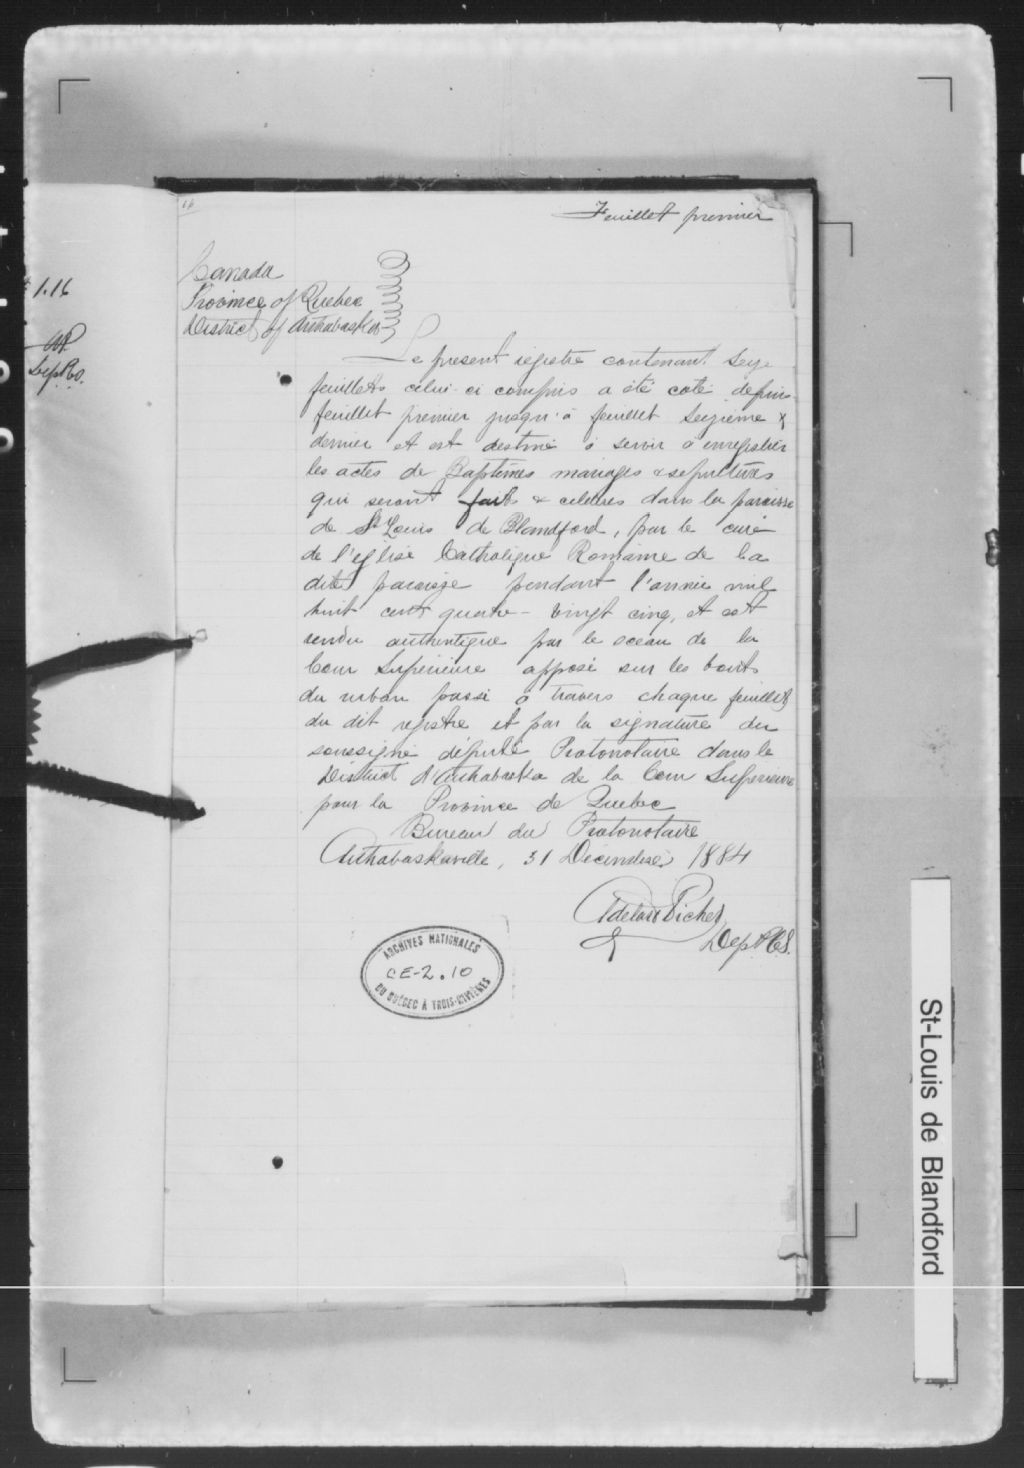 Feuillet premier
1.16
AP
Dep P.C.S.
Canada
Province of Quebec
District of Arthabaska
Le présent régistre contenant seize
feuillets celui-ci compris a été coté depuis
feuillet premier jusqu'à feuillet seizième &
dernier et est destiné à servir à enregistrer
les actes de Baptêmes mariages & sépultures
qui seront faits & célébrés dans la paroisse
de St Louis de Blandford, par le curé
de l'église Catholique Romaine de la
dite paroisse pendant l'année mil
huit cent quatre-vingt cinq, et est
rendu authentique par le sceau de la
Cour Supérieure apposé sur les bouts
du ruban passé à travers chaque feuillet
du dit régistre et par la signature du
soussigné député Protonotaire dans le
District d'Arthabaska de la Cour Supérieure
pour la Province de Quebec
Bureau du Protonotaire
Arthabaskaville, 31 Décembre 1884
Adelard Picher
Dep P.C.S.
ARCHIVES NATIONALES
CE-2.10
DU QUÉBEC À TROIS-RIVIÈRES
St-Louis de Blandford